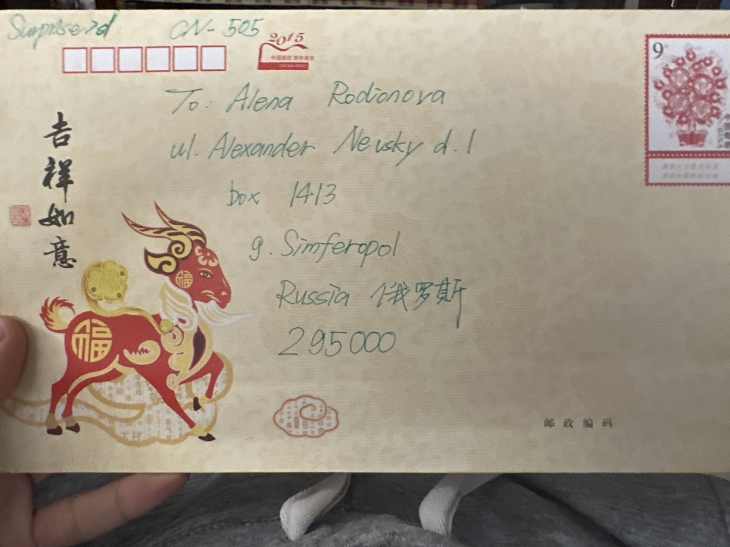 Surprise2d CN-505
2015
中国邮政 贺年有奖
CHINA POST
9
To: Alena Rodionova
ul. Alexander Nevsky d. 1
box 1413
g. Simferopol
Russia 俄罗斯
295000
吉祥如意
福
福
邮政编码